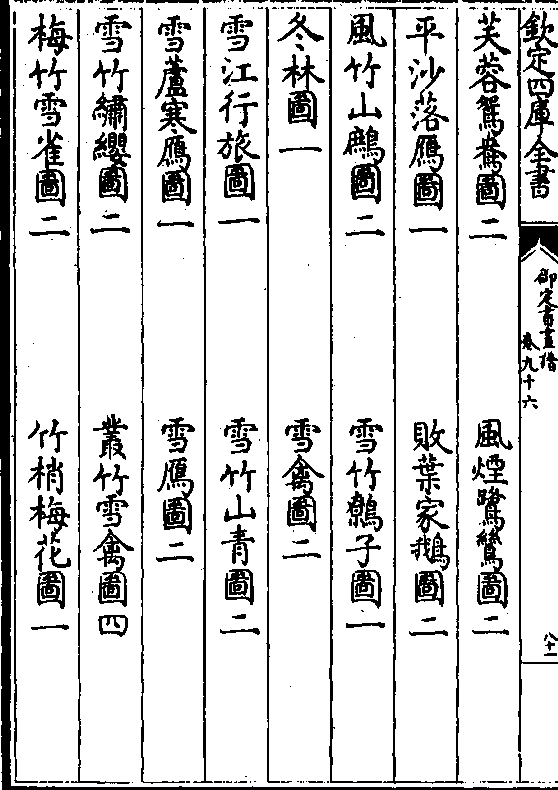 欽定四庫全書
御定書畫譜
卷九十六
八十一
芙蓉鴛鴦圖二 風煙鷺鷥圖二
平沙落鴈圖一 敗葉家鵝圖二
風竹山鷓圖二 雪竹鶉子圖一
冬林圖一 雪禽圖二
雪江行旅圖一 雪竹山青圖二
雪蘆寒鴈圖一 雪鴈圖二
雪竹繡纓圖二 叢竹雪禽圖四
梅竹雪雀圖二 竹梢梅花圖一